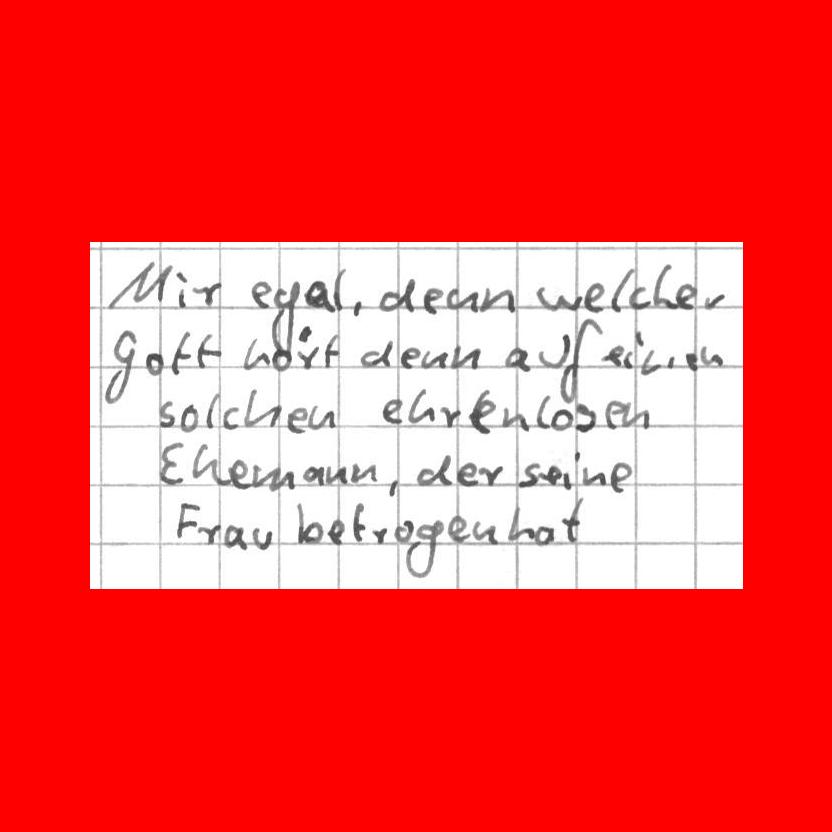 Mir egal, denn welcher
Gott hört denn auf einen
solchen ehrenlosen
Ehemann, der seine
Frau betrogen hat